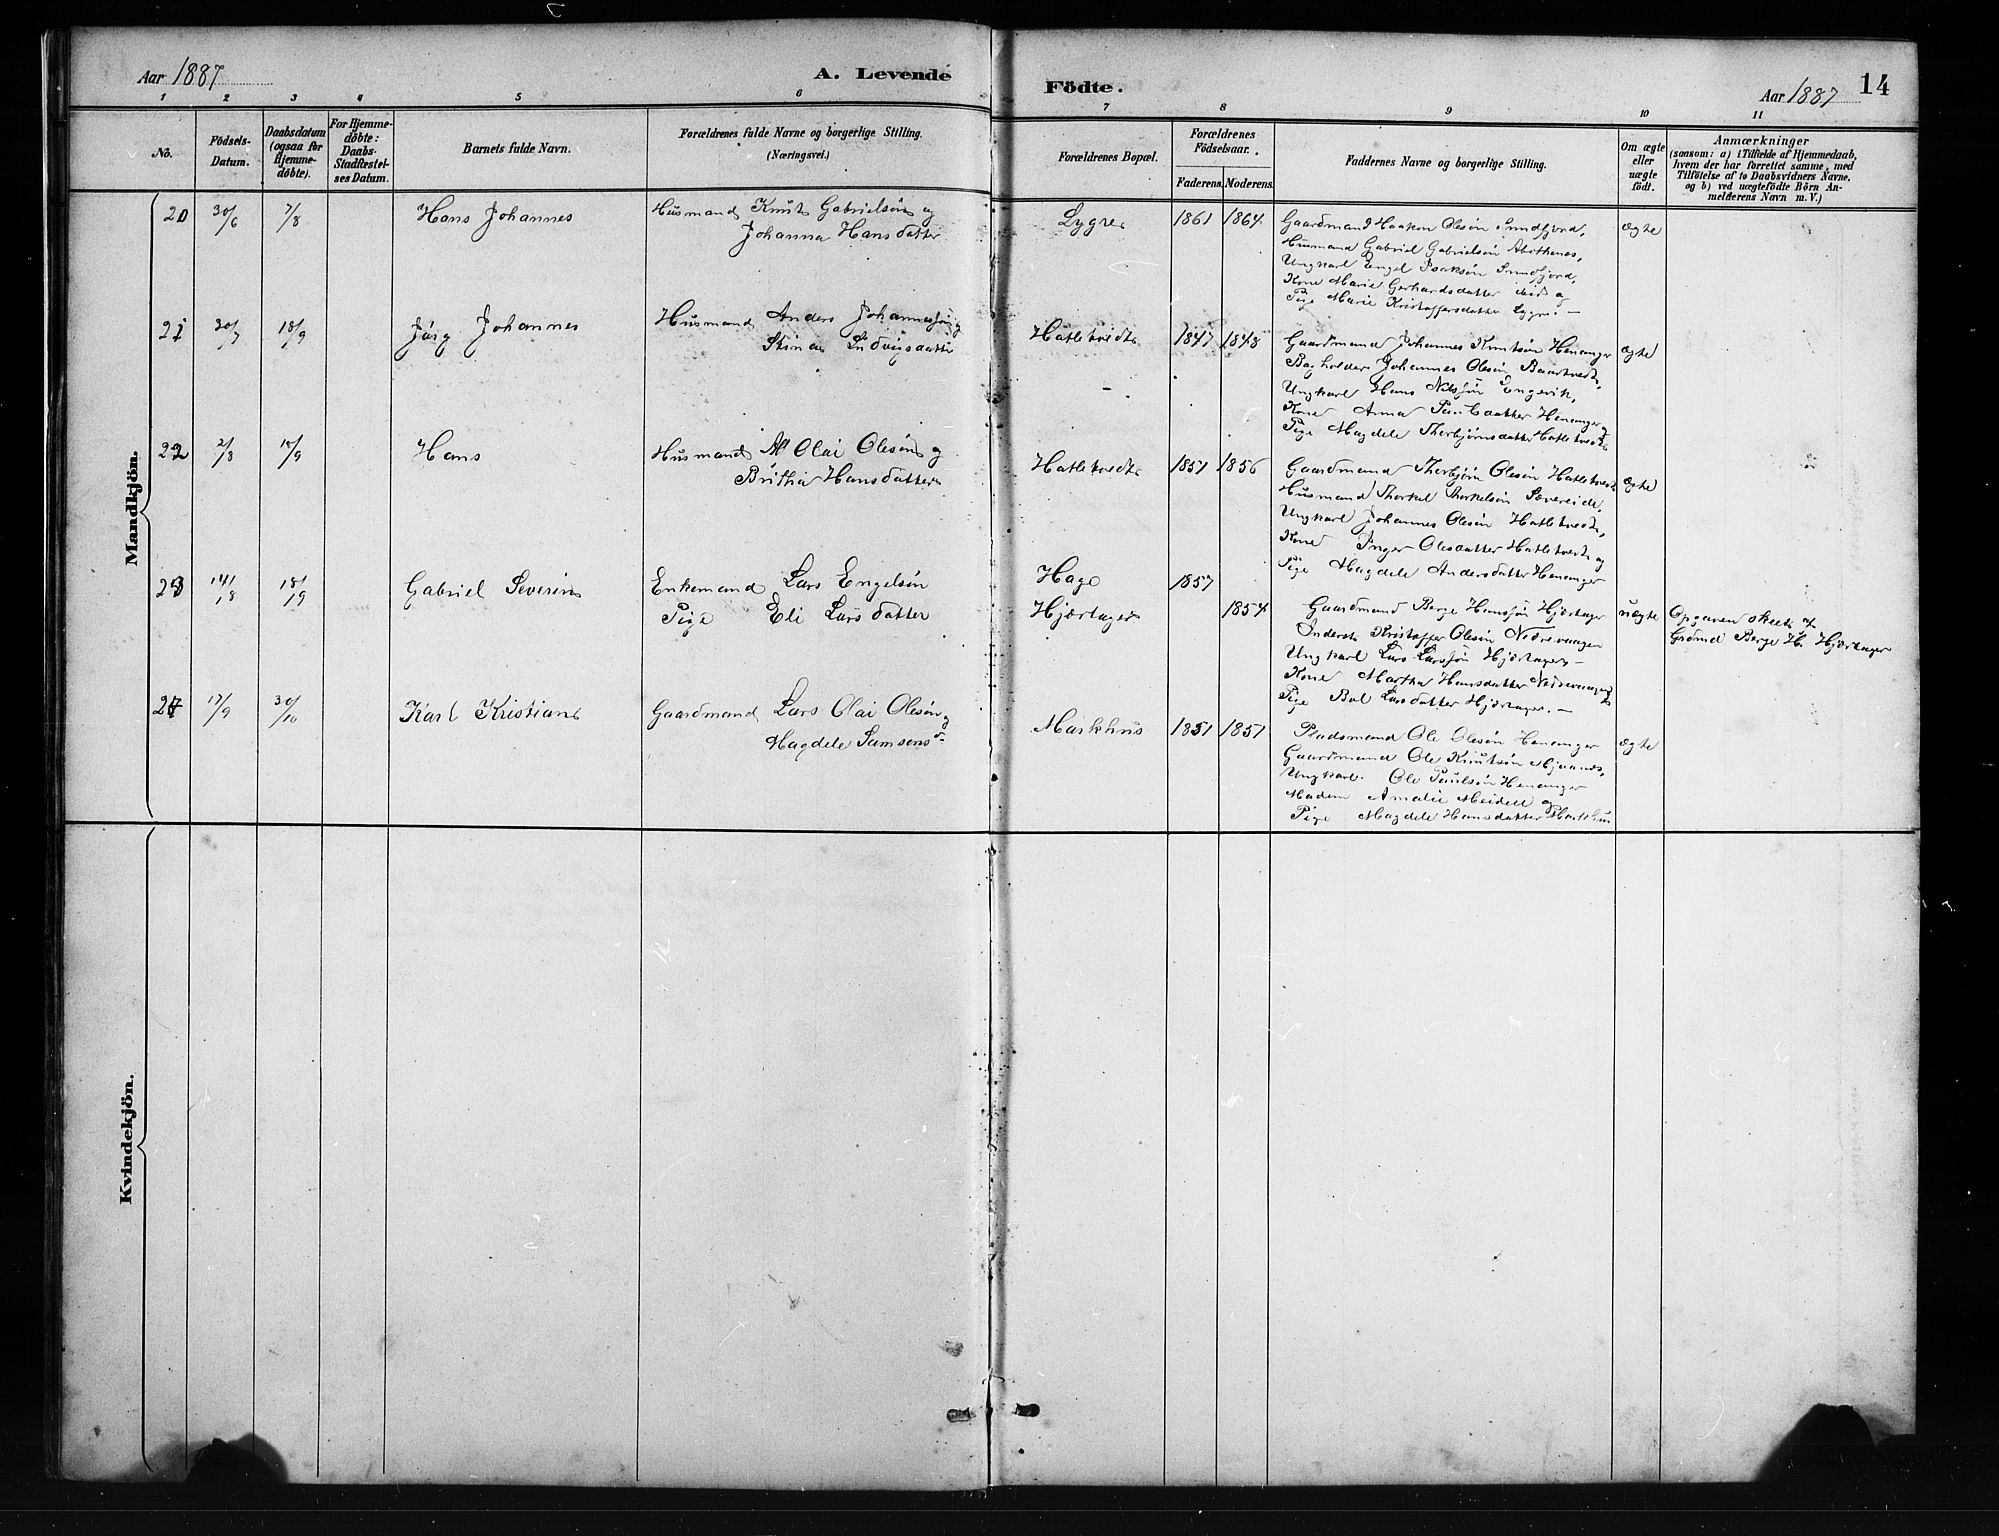 Aar 1887
A. Levende
Födte.
Aar 1887
14
1 2 3 4 5 6 7 8 9 10 11
No.
Födsels-
Datum.
Daabsdatum
(ogsaa for
Hjemme-
döbte).
For Hjemme-
döbte:
Daabs-
Stadfæstel-
ses Datum.
Barnets fulde Navn.
Forældrenes fulde Navne og borgerlige Stilling.
(Næringsvei.)
Forældrenes Bopæl.
Forældrenes
Födselsaar.
Faderens. Moderens.
Faddernes Navne og borgerlige Stilling.
Om ægte
eller
uægte
födt.
Anmærkninger
(saasom: a) i Tilfælde af Hjemmedaab,
hvem der har forrettet samme, med
Tilföielse af to Daabsvidners Navne.
og b) ved uægtefödte Börn An-
melderens Navn m. V.)
Mandkjön.
20 30/6 7/8 Hans Johannes
Husmand Knut Gabrielsön og
Johanna Hansdatter
Lygre 1861 1864
Gaardmand Haakon Olesön Sundfjord,
Husmand Gabriel Gabrielsön
Ungkarl Engel Isaksön Sundfjord,
Kone Marie Gerhardsdatter ibid og
Pige Marie Kristoffersdatter Lygre. —
ægte
21 30/7 18/9 Jörg Johannes
Husmand Anders Johannessön og
Stina Ludvigsdatter
Hatletvedt 1847 1848
Gaardmand Johannes Knutsön Henanger
Johannes Olesön
Ungkarl Hans Nilssön Engevik,
Kone Anna Paulsdatter Henanger og
Pige Magdele Thorbjörnsdatter Hatletvedt
ægte
22 2/8 18/9 Hans
Husmand Olai Olesön og
Britha Hansdatter
Hatletvedt 1857 1856
Gaardmand Thorbjörn Olesön Hatletvedt
Husmand Thorkel Thorkelsön Sævereide,
Ungkarl Johannes Olesön Hatletvedt,
Kone Inger Olesdatter Hatletvedt og
Pige Magdele Andersdatter Henanger
ægte
23 14/8 18/9 Gabriel Severin
Enkemand Lars Engelsön
Pige Eli Larsdatter
Hage 1857
Hjortager 1854
Gaardmand Berge Hanssön Hjortager
Inderst Kristoffer Olesön Nedrevaagen
Ungkarl Lars Larssön Hjortager —
Kone Martha Hansdatter Nedrevaagen
Pige Bol Larsdatter Hjortager. —
uægte
Opgaven skeet af
Grdmd Berge H. Hjortager
24 17/9 30/10 Karl Kristian
Gaardmand Lars Olai Olesön og
Magdele Samsonsd
Markhus 1851 1857
Pladsmand Ole Olesön Henanger
Gaardmand Ole Knutsön Mjaanæs,
Ungkarl Ole Paulsön Henanger
Madam Amalie Meidell og
Pige Magdele Hansdatter Markhus
ægte
Kvindekjön.